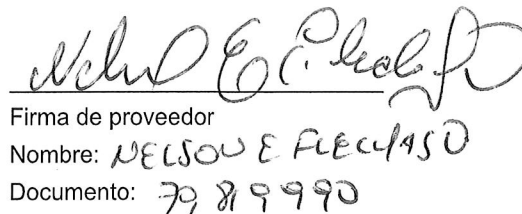 Firma de proveedor
Nombre: NELSON E FLECHAS O
Documento: 79 819 990